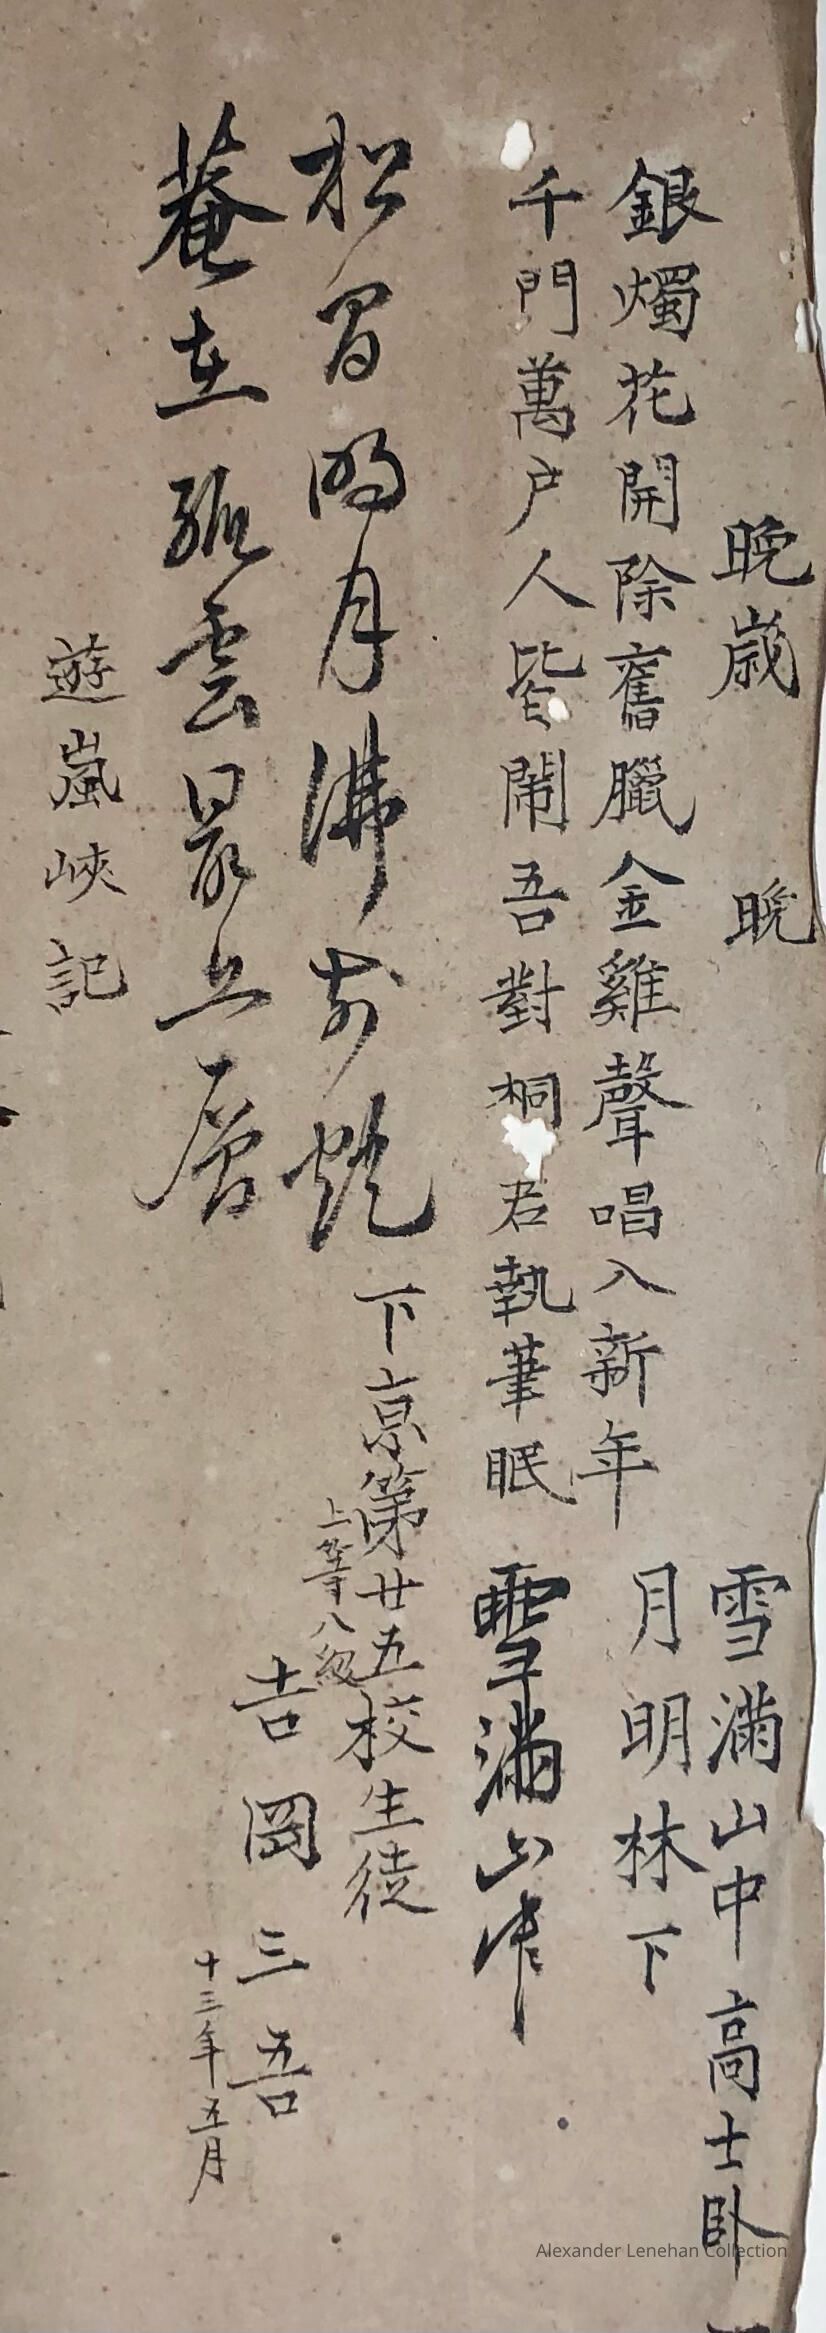 晩歳 晩
銀燭花開除舊臘金雞聲唱入新年
千門萬户人皆鬧吾對桐君執筆眠
雪滿山中高士臥
月明林下
雪滿山中
松間明月沸前燈
菴在孤雲最上層
下京第廿五校生徒
上等八級
吉岡三吾
十三年五月
遊嵐峽記
Alexander Lenehan Collection